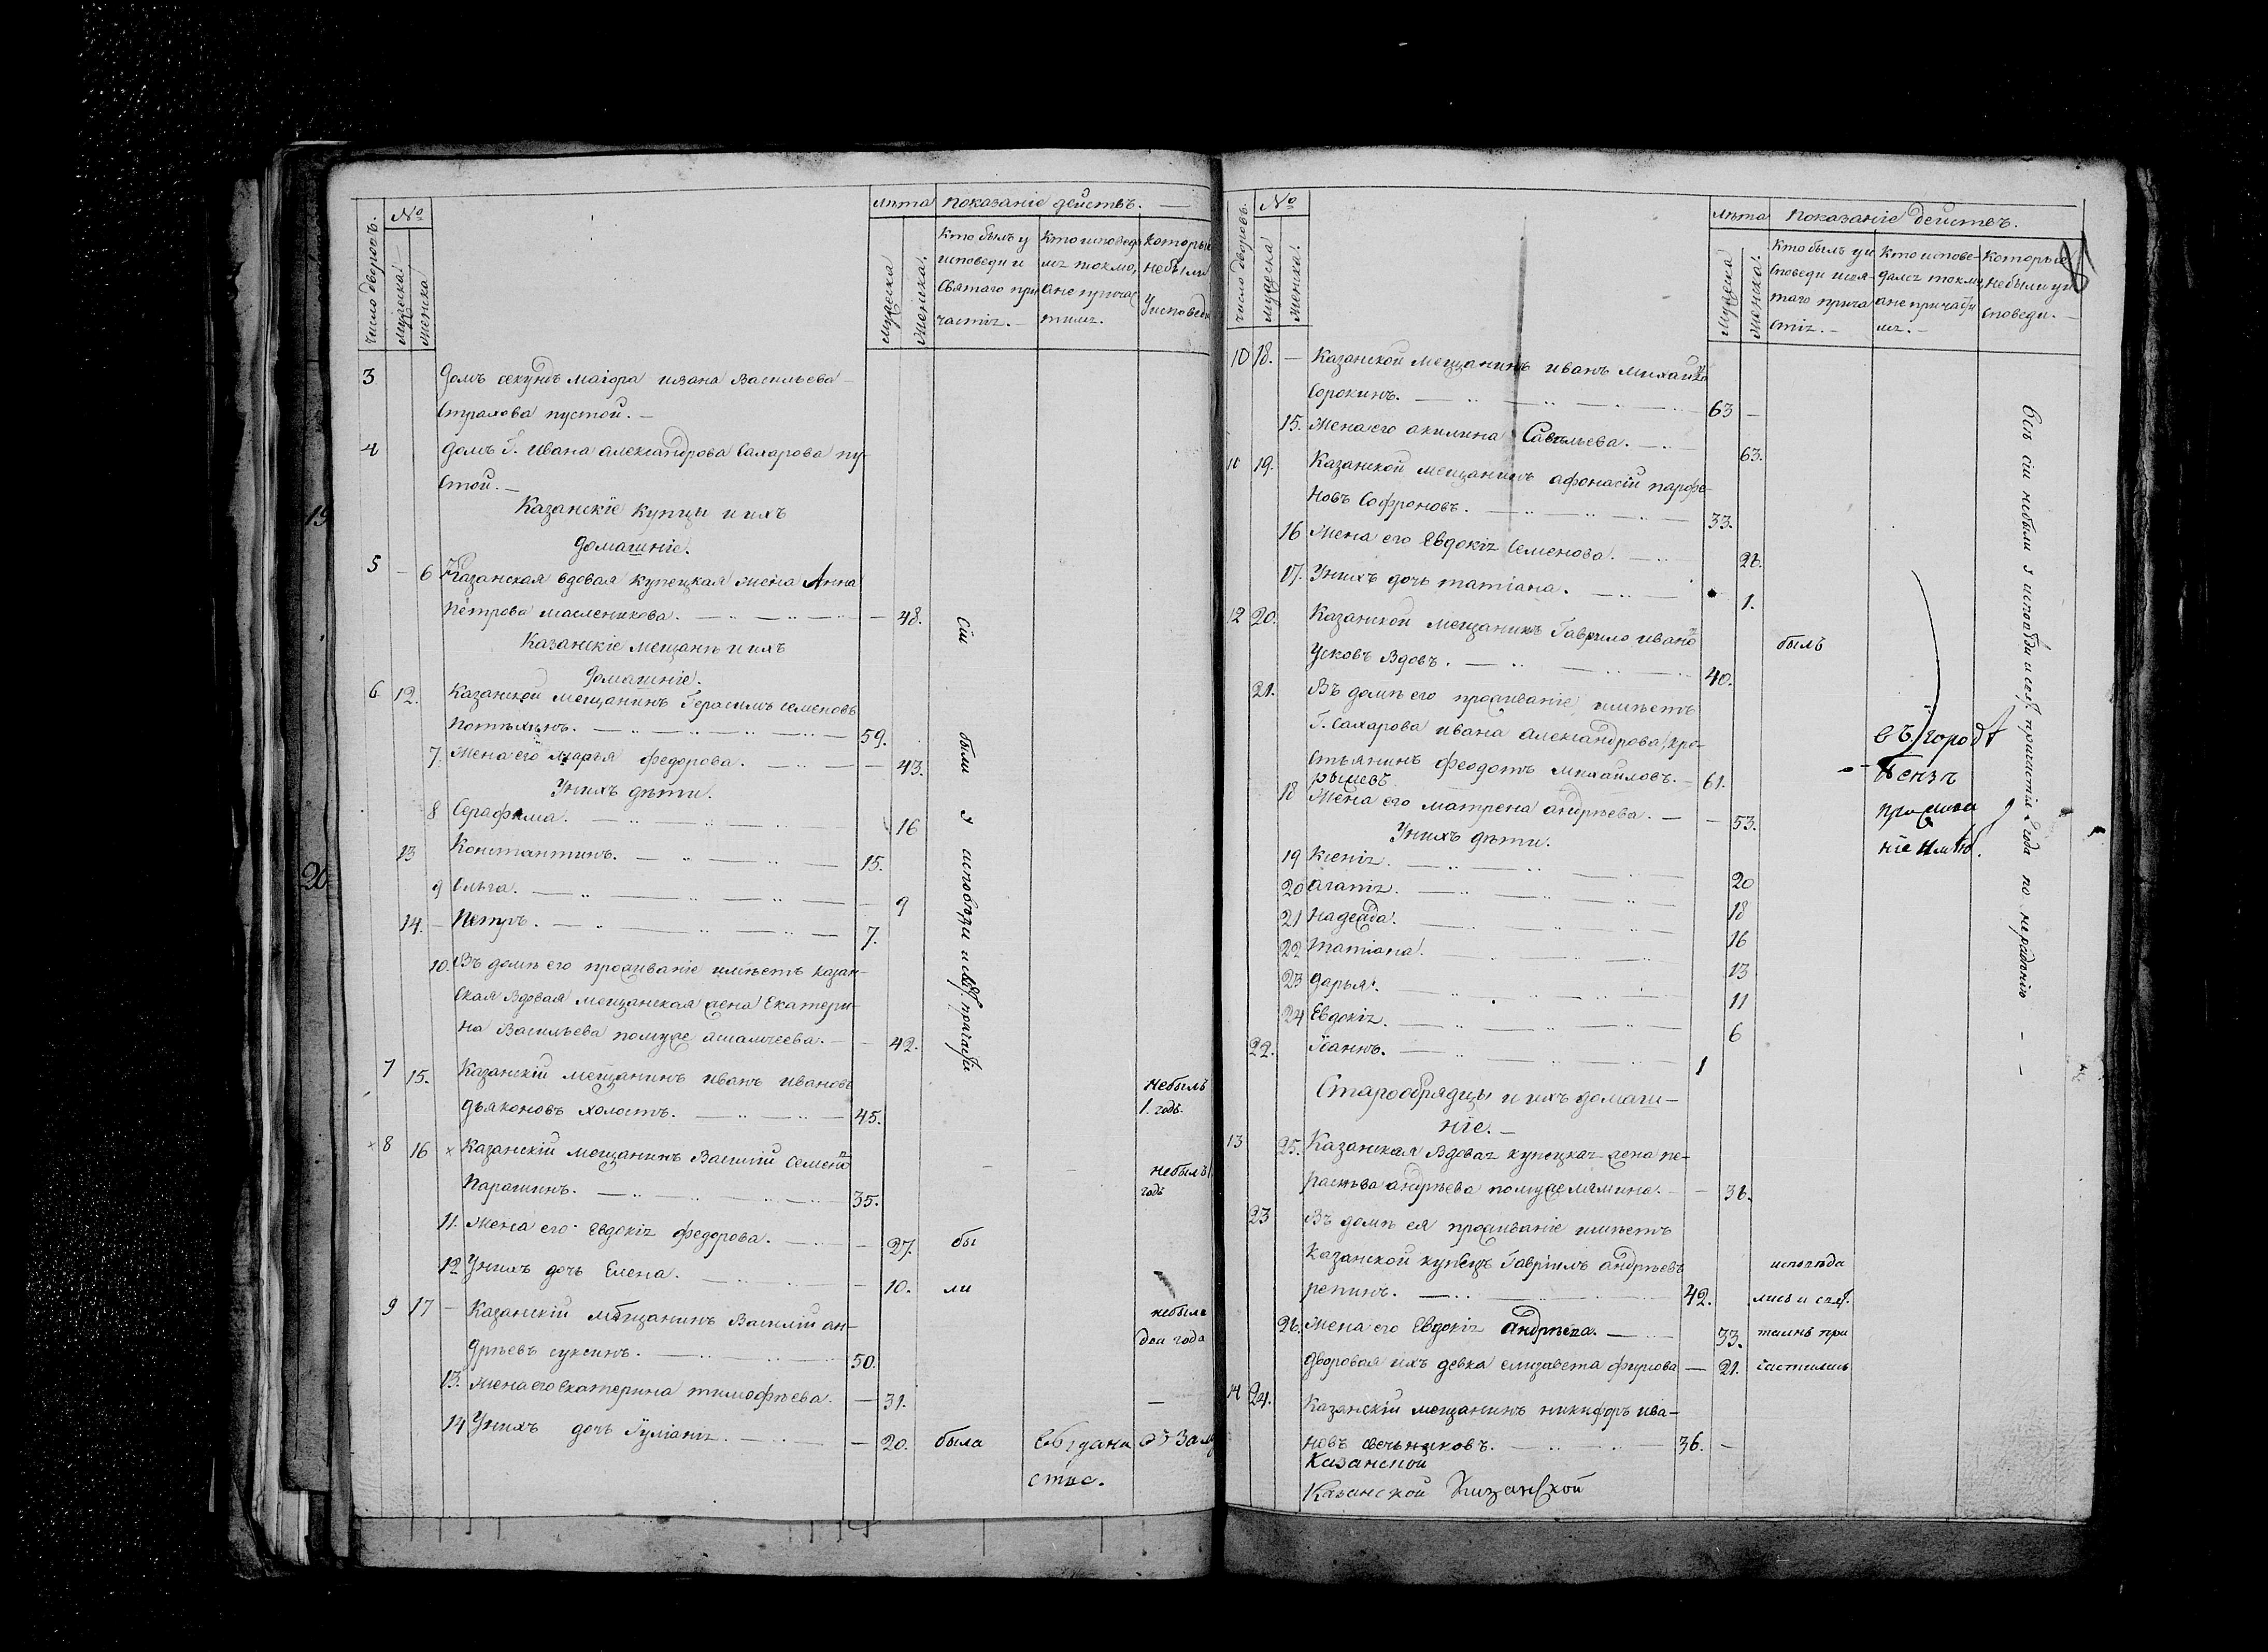 число дворовъ.
№
мужеска
женска
лѣта
показаніе действъ.
мужеска
женска.
кто былъ у
исповеди и
святаго при
частія.
кто исповед
ал токмо,
а не причас
тился.
которые
небыли
у исповеди
3 домъ секундъ маіора ивана Васильева
Страхова пустой.
4 домъ Г. ивана александрова Сахарова пу-
стой.
Казанскіе купцы и ихъ
домашніе.
5 — 6 Казанская вдовая купецкая жена Анна
петрова масленикова. — 48.
Казанскіе мещанѣ и ихъ
домашніе.
6 12. Казанской мещанинъ Герасимъ семеновъ
потѣхинъ. 59.
7. Жена его марья федорова. — 43.
У нихъ дѣти.
8 Серафима. 16
13 Константинъ. 15.
9 Ольга. 9
14. Петръ. 7.
10. Въ домѣ его проживаніе имѣетъ казан-
ская вдовая мещанская жена Екатери-
на Васильева по мужѣ 42.
сіи были у исповѣди и св. причастія
7 15. Казанскій мещанинъ иванъ ивановъ
дьяконовъ холостъ. 45.
небылъ
1. годъ.
8 16 Казанскій мещанинъ Василій Семено
Парашинъ. 35.
небылъ 1.
годъ
11. Жена его Евдокія федорова. — 27. бы
12 У нихъ дочь Елена. — 10. ли
9 17 — Казанскій мѣщанинъ Василій ан-
дрѣевъ суксинъ. 50.
небылъ
два года
13. Жена его екатерина тимофѣева. — 31. —
14 У нихъ дочь Іуліанія. — 20. была
число дворовъ.
№
мужеска
женска.
лѣта
показаніе действъ.
мужеска
женска.
Кто былъ у и
споведи и свя-
таго прича
стія.
Кто испове-
дался токмо,
а не причасти
лся.
которые
небыли у и
споведи.
10 18. — Казанской мещанинъ иванъ михайло
Сорокинъ. 63 —
15. Жена его акилина Савельева. 63.
11 19. Казанской мещанинъ афонасій парфе-
новъ Софроновъ. 33.
16 Жена его Евдокія Семенова. 26.
17. У нихъ дочь татіана. 1.
12 20. Казанской мещанинъ Гаврило ивано
Усковъ вдовъ. 40.
былъ
21. Въ домѣ его проживаніе имѣетъ
Г. Сахарова ивана александрова кре-
стьянинъ феодотъ михаиловъ. 61.
рышевъ
въ городѣ
пензѣ
прожива
ніе имѣю.
18 Жена его матрена андрѣева. — 53.
У нихъ дѣти.
19 Ксенія. 20
20 агапія. 18
21 надежда. 16
22 татіана. 13
23 дарья. 11
24 Евдокія. 6
22. Іоаннъ. 1
Всѣ сіи небыли у исповѣди и св. причастія 2 года по нерадѣнію
Старообрядцы и ихъ домаш-
ніе.
13 25. Казанская вдовая купецкая жена пе-
расковья андрѣева по мужѣ мамина. — 36.
23 Въ домѣ ея проживаніе имѣетъ
казанской купецъ Гавріилъ андрѣевъ
репинъ. 42.
исповѣда
лись и свя.
26. Жена его Евдокія андрѣева. 33. таинъ при
дворовая ихъ девка елизавета фирсова — 21. частились
14 24. Казанскій мещанинъ никифоръ ива-
новъ свешниковъ. 36. —
Казанской
Казанской Казанской